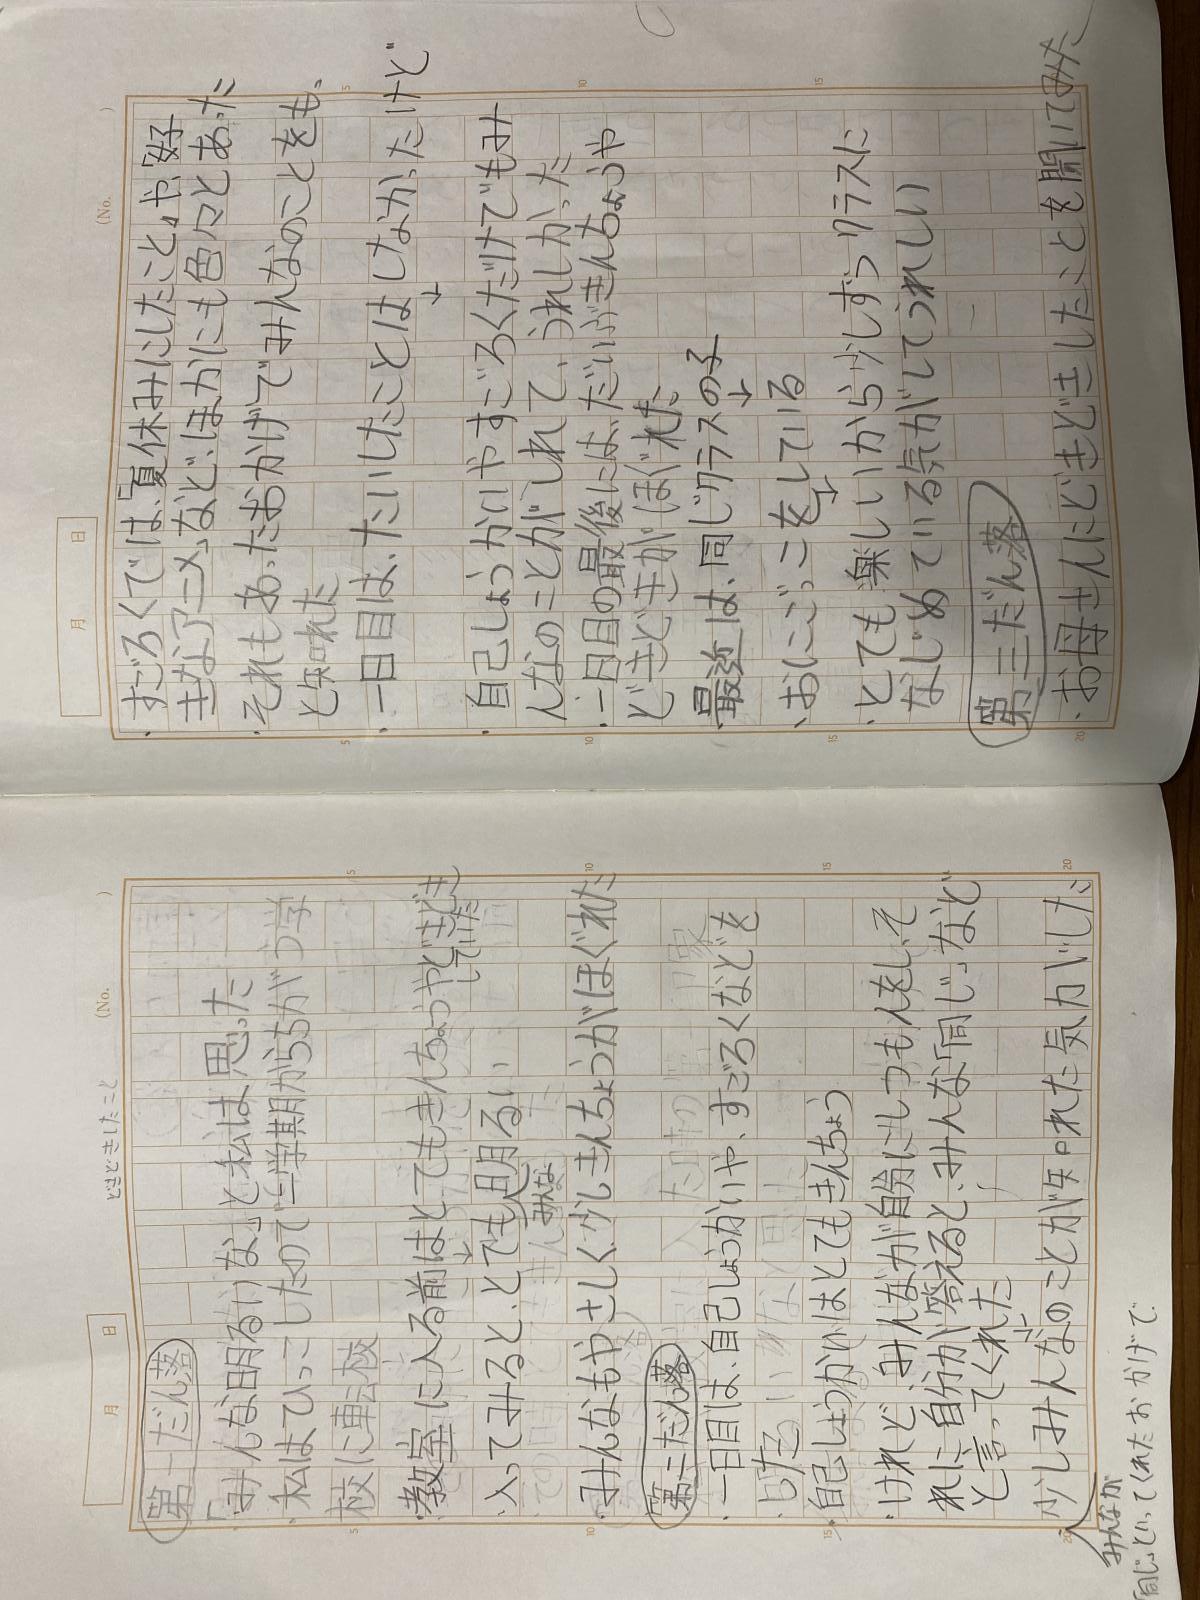 どきどきしたこと
(No. )
月 日
第一だん落
「みんな明るいな」と私は思った
・私はひっこしたので二学期からちがう学
校に転校
・教室に入る前はとてもきんちょうやどきどき
していた
・入ってみると、とても明るい
みんな
・みんなもやさしく少しきんちょうがほぐれた
第二だん落
・一日目は、自己しょうかいや、すごろくなどを
した
・自己しょうかいはとてもきんちょう
・けれど、みんなが自分にしつもんをし、そ
れに自分が答えると、みんな「同じ」など
と言ってくれた
・少しみんなのことが知れた気がした
みんなが
「同じ」といってくれたおかげで
(No. )
月 日
・すごろくでは、「夏休みにしたこと」や、「好
きなアニメ」など、ほかにも色々とあった
・それもあったおかげでみんなのことをも、
と知れた
・一日目は、たいしたことはしなかったけど
自己しょうかいやすごろくだけでもみ
んなのことがしれて、うれしかった
・一日目の最後には、だいぶきんちょうや
どきどきがほぐれた
最近は、同じクラスの子
・おにごっこをしている
・とても楽しいから少しずつクラスに
なじめている気がしてうれしい
第三だん落
・お母さんにどきどきしたことを聞いてみた
5
10
15
20